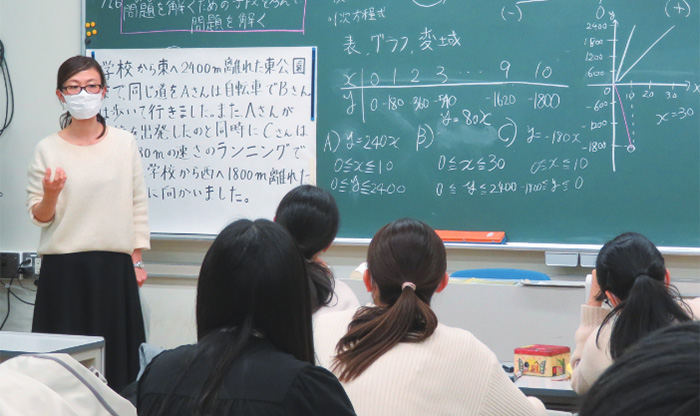 問題を解くための手段とろん
問題を解く
学校から東へ2400m離れた東公園
て同じ道をAさんは自転車でBさん
は歩いて行きました。またAさんが
を出発したのと同時にCさんは
80mの速さのランニングで
学校から西へ1800m離れた
に向かいました。
1次方程式
表,グラフ,変域
x 0 1 2 3 ・・・ 9 10
y 0 -180 360 -540 -1620 -1800
A) y=240x B) y=80x C) y=-180x
0≦x≦10 0≦x≦30 0≦x≦10
0≦y≦2400 0≦y≦2400 -1800≦y≦0
(-) 0 (+)
2400
1800
1200
600
10 20 30
x=30
-600
-1200
-1800